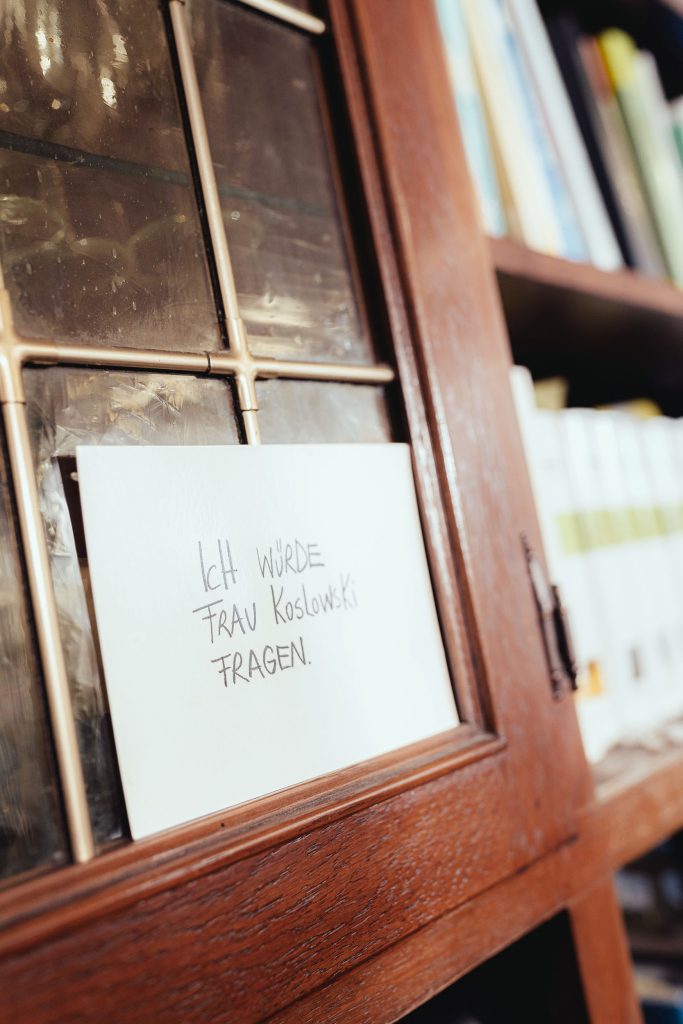 ICH WÜRDE
FRAU KOSLOWSKI
FRAGEN.